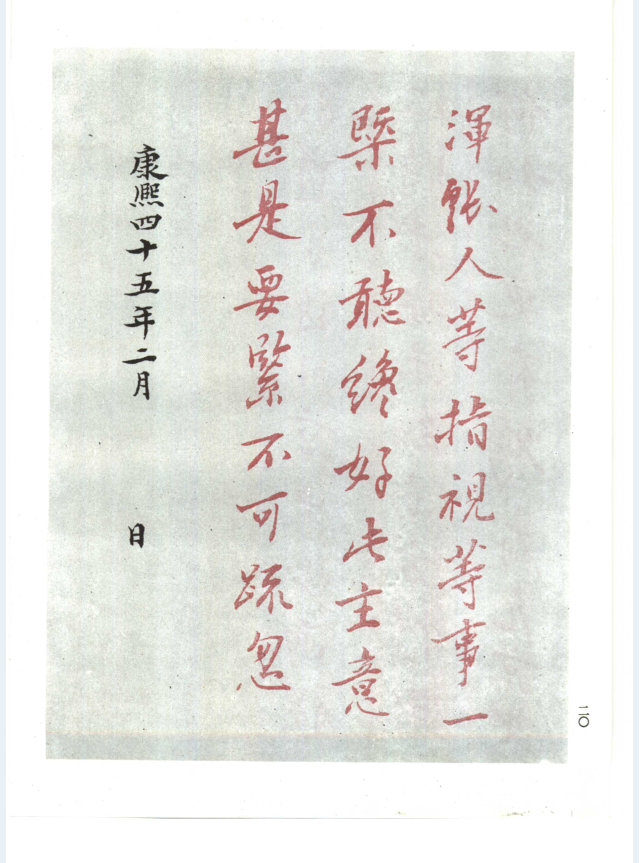 渾賬人等指視等事一
槩不聽纔好此主意
甚是要緊不可疏忽
康熙四十五年二月 日
110